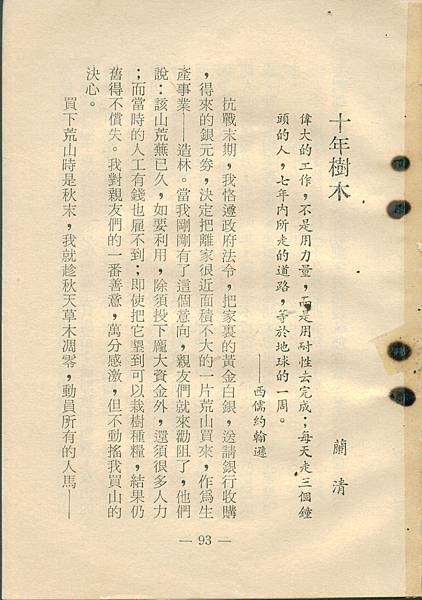 十年樹木
蘭清
偉大的工作，不是用力量，而是用耐性去完成；每天走三個鐘
頭的人，七年內所走的道路，等於地球的一周。
——西儒約翰遜
抗戰末期，我恪遵政府法令，把家裏的黃金白銀，送請銀行收購
，得來的銀元券，決定把離家很近面積不大的一片荒山買來，作為生
產事業——造林。當我剛剛有了這個意向，親友們就來勸阻了，他們
說：該山荒蕪已久，如要利用，除須投下龐大資金外，還須很多人力
；而當時的人工有錢也雇不到；即使把它墾到可以栽樹種糧，結果仍
舊得不償失。我對親友們的一番善意，萬分感激，但不動搖我買山的
決心。
買下荒山時是秋末，我就趁秋天草木凋零，動員所有的人馬——
— 93 —